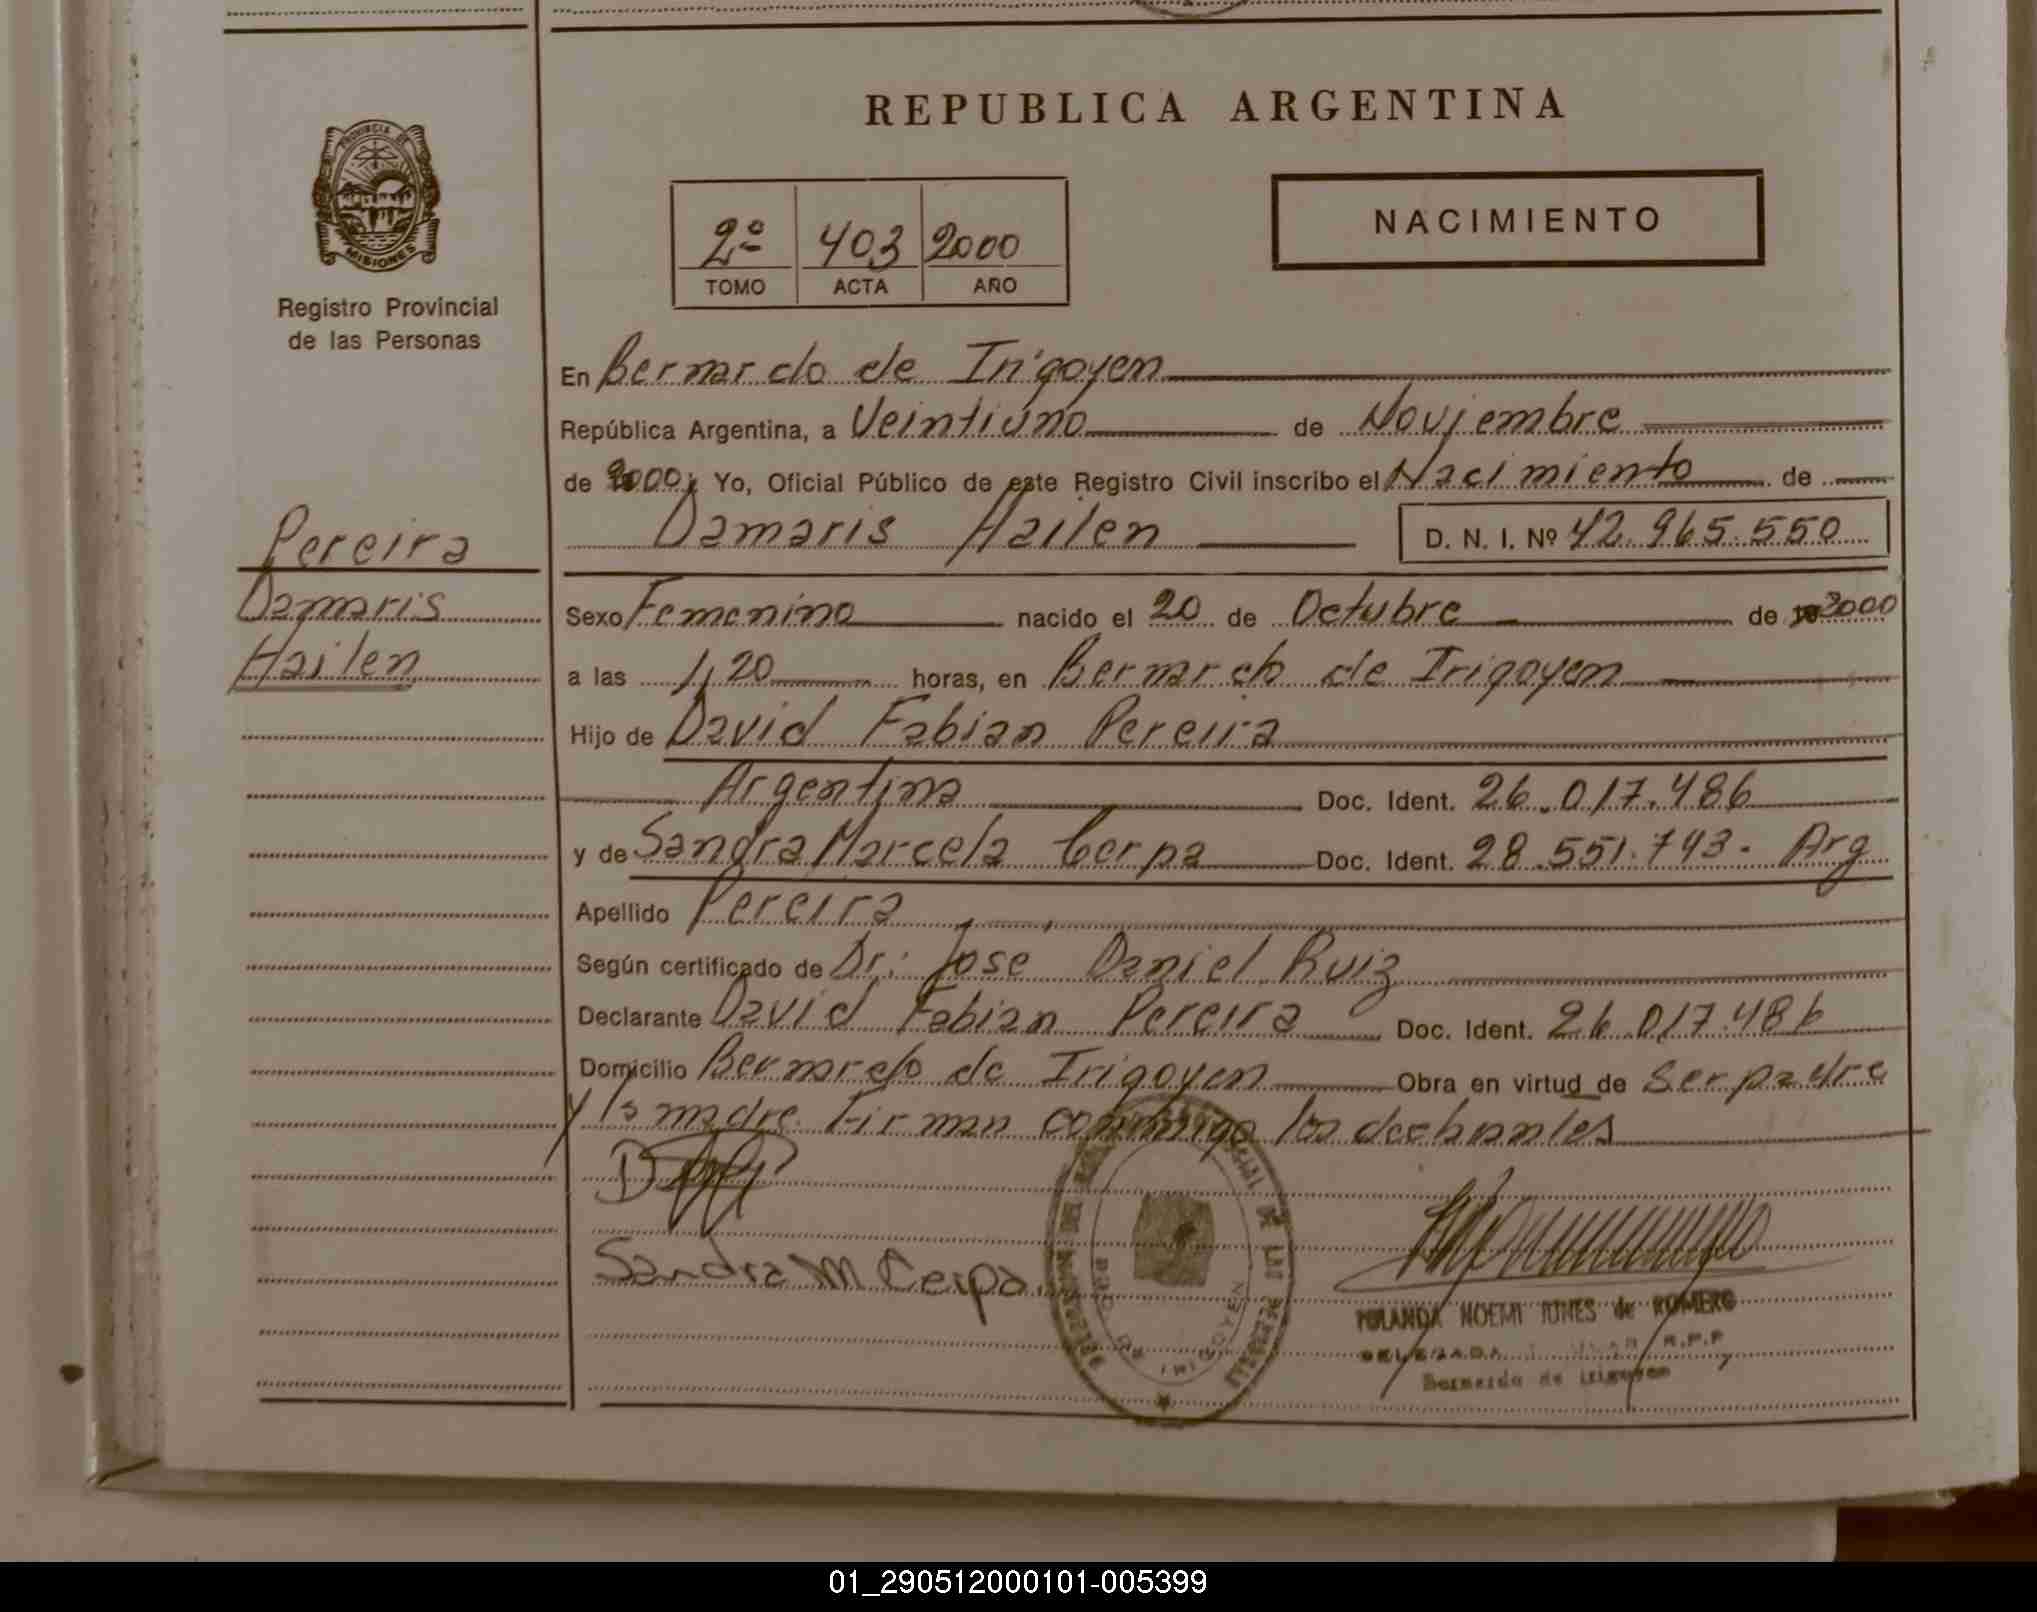 REPUBLICA ARGENTINA
PROVINCIA DE
MISIONES
Registro Provincial
de las Personas
2º 403 2000
TOMO ACTA AÑO
NACIMIENTO
En Bernardo de Irigoyen
República Argentina, a Veintiuno de Noviembre
de 2000; Yo, Oficial Público de este Registro Civil inscribo el Nacimiento de
Damaris Hailen D. N. I. Nº 42.965.550
Pereira
Damaris
Hailen
Sexo Femenino nacido el 20 de Octubre de 2000
a las 1,20 horas, en Bernardo de Irigoyen
Hijo de David Fabian Pereira
Argentina Doc. Ident. 26.017.486
y de Sandra Marcela Cerpa Doc. Ident. 28.551.743. Arg
Apellido Pereira
Según certificado de Dr. Jose Daniel Ruiz
Declarante David Fabian Pereira Doc. Ident. 26.017.486
Domicilio Bernardo de Irigoyen Obra en virtud de Ser padre
y la madre. Firman conmigo los declarantes
Sandra M Cerpa
NOEMI de ROMERO
DELEGADA R.P.P
Bernardo de Irigoyen
01_290512000101-005399